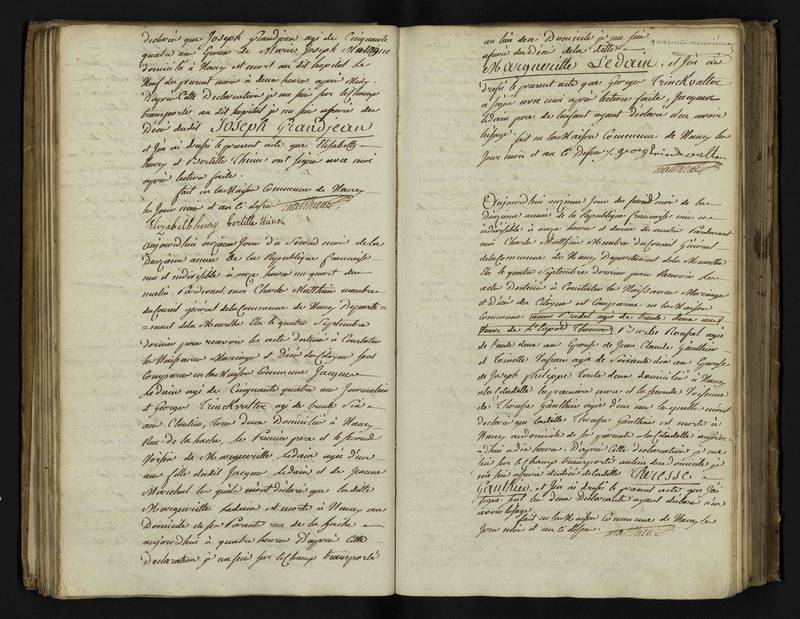 déclarée que Joseph Grandjean agé de Cinquante
quatre an Epoux de Marie Joseph
domicilié à Nancy est mort au dit hopital le
Neuf du present mois à deux heures après Midy
D'après Cette Déclaration je me suis sur le Champ
transporté au dit hopital je me suis assuré du
Décé dudit Joseph Grandjean
et j'en ai dressé le present acte que Elisabeth
henry et Bertille thirie ont signé avec moi
après lecture faite.
fait en la Maison Commune de Nancy
les Jour mois et an ci dessus Matthieu
Elizabeth henry Bertille
aujourdhui onzieme Jour du Second mois de la
Douzieme année de la Republique francaise
une et indivisible à onze heures un quart du
matin. Pardevant moi Charles Matthieu membre
du Conseil général de la Commune de Nancy Departe-
-ment de la Meurthe Elu le quatre Septembre
dernier pour recevoir les actes destinés à Constater
les Naissances Mariages et Décès des Citoyens sont
Comparus en la Maison Commune Jacques
Ledain agé de Cinquante quatre an Journalier
et George Trinckvalter agé de trente Six
an Cloutier, tous deux Domiciliés à Nancy
Rue de la hache, le Premier pere et le Second
Voisin de Marguerite Ledain agée d'un
an fille dudit Jacques Ledain et de Jeanne
Marchal les quels m'ont déclaré que ladite
Marguerite Ledain est morte à Nancy au
Domicile de ses Parents rue de la hache
aujourdhui à quatre heures D'après Cette
Declaration je me suis sur le Champ transporté
quarante neuvieme
au lieu dece Domicile je me suis
assuré du Décé de la dite
Margueritte Ledain, et j'en ai
dressé le present acte que George Trinckvalter
a signé avec moi après lecture faite, Jacques
Ledain pere de lenfant ayant déclaré n'en avoir
lusage.
fait en la Maison Commune de Nancy les
Jour mois et an ci Dessus
Matthieu
Aujourdhui onzieme Jour du Second mois de la
Douzieme année de la Republique francaise une et
indivisible à onze heures et demie du matin Pardevant
moi Charles Matthieu Membre du Conseil Général
de la Commune de Nancy Departement de la Meurthe
Elu le quatre Septembre dernier pour Recevoir les
actes Destinés à Constater les Naissances Mariages
et Décès des Citoyens est Comparue en la Maison
commune
Veuve de
de trente deux ans Epouse de Jean Claude Gauthier
et agée de Soixante dix ans Epouse
de Joseph Philippe toutes deux domiciliées à Nancy
à la Citadelle la premiere mere et la seconde Voisine
de Therese Gauthier agée d'un an lesquelles m'ont
declaré que ladite Therese Gauthier est morte à
Nancy au domicile de ses parents à la Citadelle aujour
-dhui à dix heures. D'après Cette déclaration je me
suis sur le Champ transporté au lieu dece domicile je
me suis assuré du décé de la dite Theresse
Gauthier et j'en ai dressé le present acte que j'ai
signé seul les deux Déclarantes ayant déclaré n'en
avoir lusage.
fait en la Maison Commune de Nancy les
Jour mois et an ci dessus. Matthieu